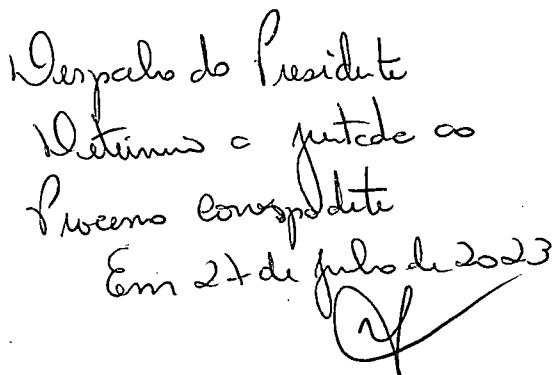 Despacho do Presidente
Determino a juntada ao
Processo correspondente
Em 27 de julho de 2023